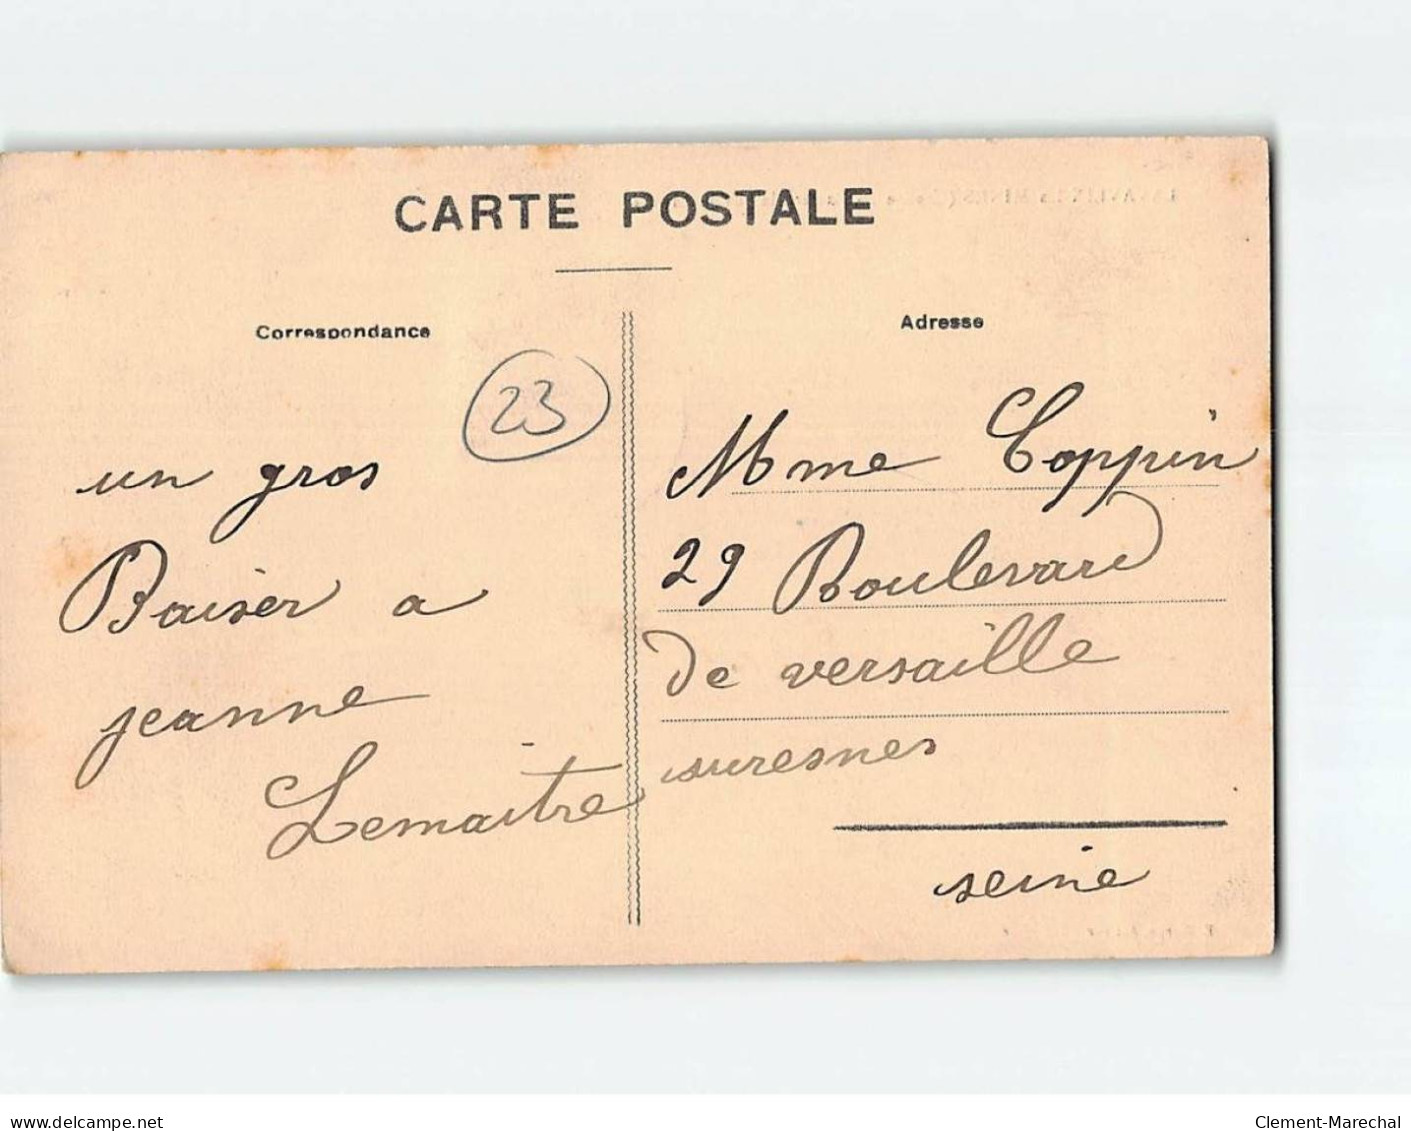 CARTE POSTALE
Correspondance
23
un gros
Baiser a
jeanne
Lemaitre
Adresse
Mme Coppin
29 Boulevard
de versaille
suresnes
seine
www.delcampe.net
Clement-Marechal